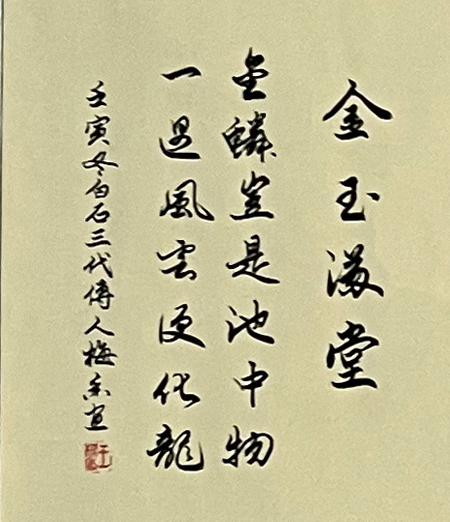 金玉滿堂
金鱗豈是池中物
一遇風雲便化龍
壬寅冬白石三代傳人梅